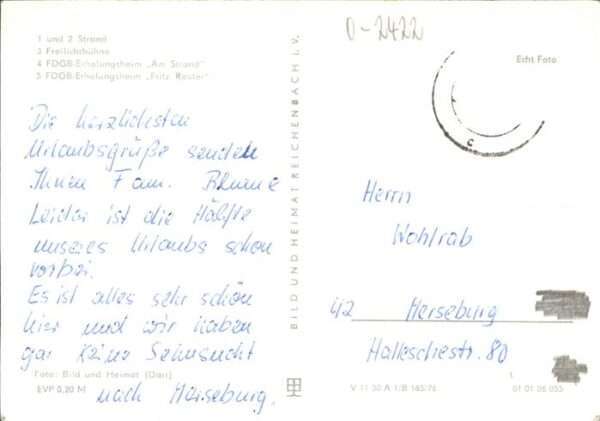 1 und 2 Strand
3 Freilichtbühne
4 FDGB-Erholungsheim „Am Strand"
5 FDGB-Erholungsheim „Fritz Reuter"
Die herzlichsten
Urlaubsgrüße senden
Ihnen Fam. Blume
Leider ist die Hälfte
unseres Urlaubs schon
vorbei.
Es ist alles sehr schön
hier und wir haben
gar keine Sehnsucht
nach Merseburg.
Foto: Bild und Heimat (Darr)
EVP 0,20 M
BILD UND HEIMAT REICHENBACH i. V.
0-2422
Echt Foto
Herrn
Wohlrab
42 Merseburg
Halleschestr. 80
V 11 50 A 1/B 165/76
01 01 06 055